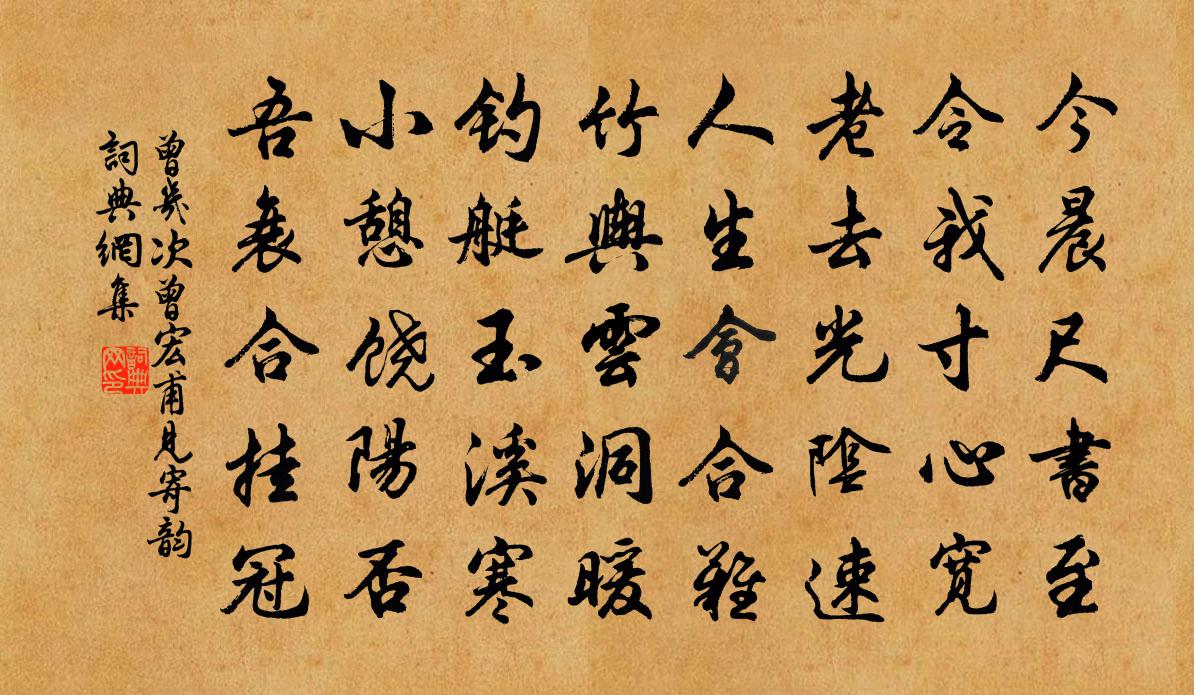 今晨尺書至
令我寸心寬
老去光陰速
人生會合難
竹輿雲洞暖
釣艇玉溪寒
小憩饒陽否
吾衰合挂冠
曾幾次曾宏甫見寄韵
詞典網集